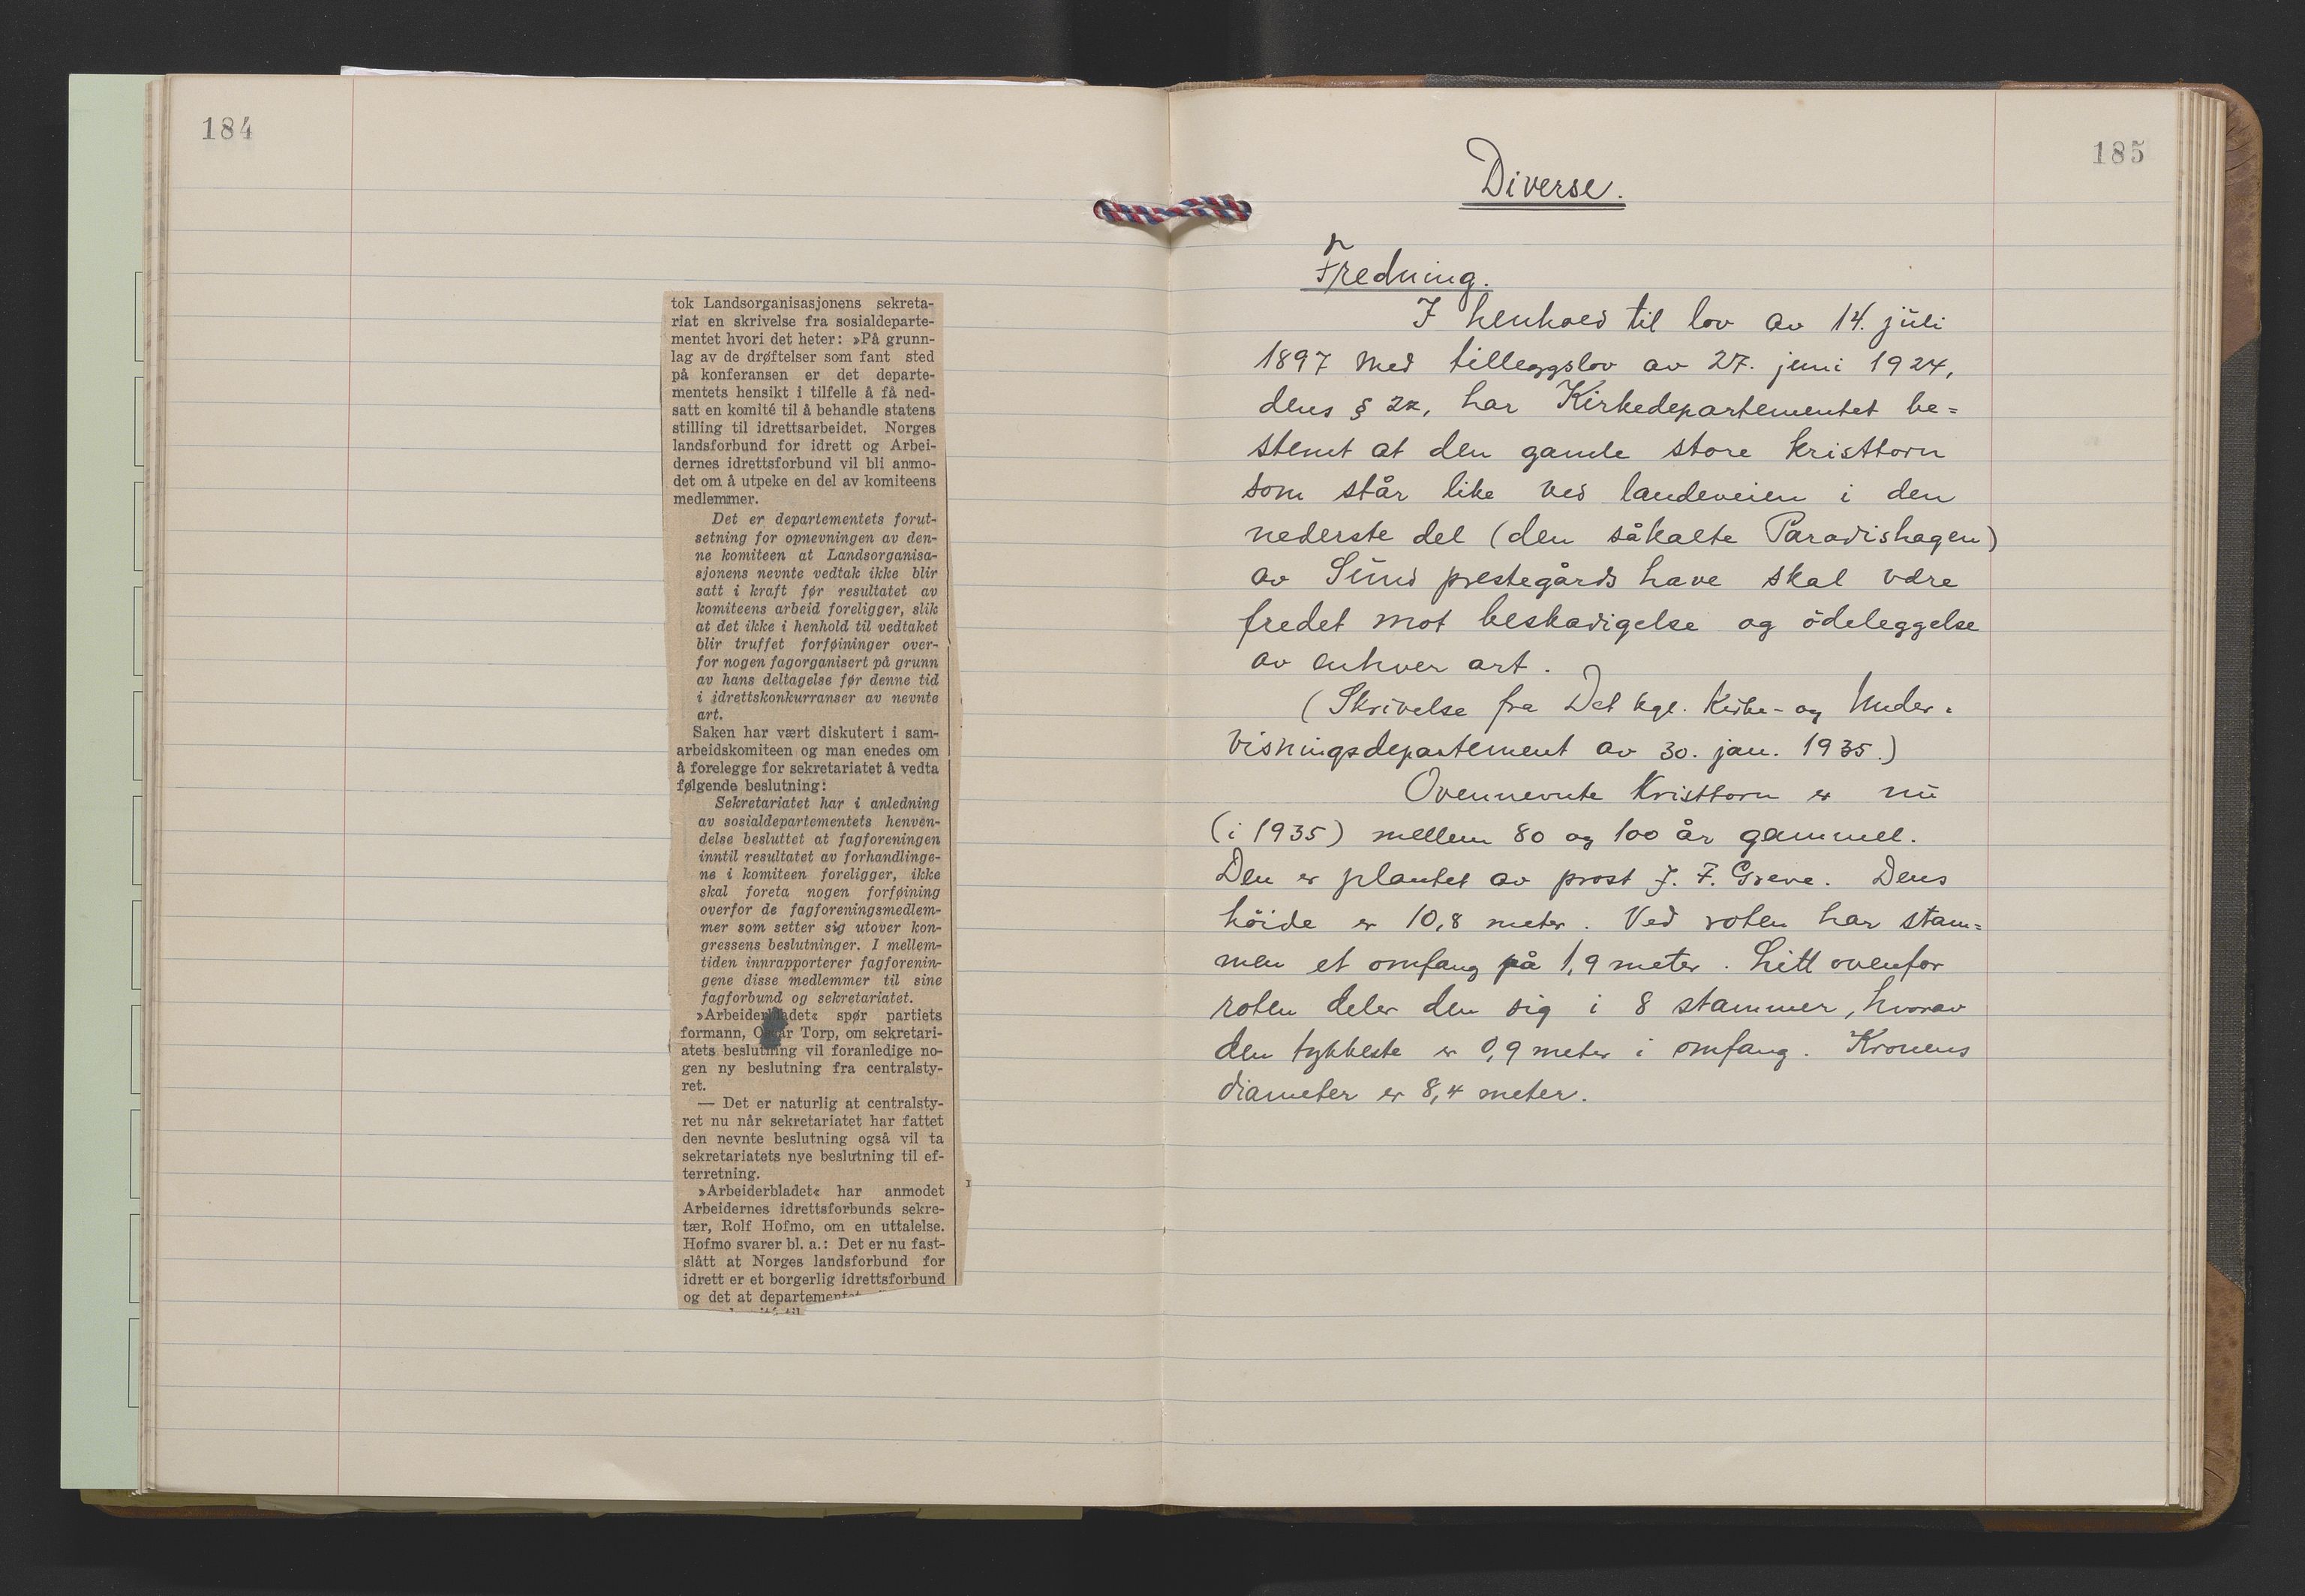 184
tok Landsorganisasjonens sekreta-
riat en skrivelse fra sosialdeparte-
mentet hvori det heter: »På grunn-
lag av de drøftelser som fant sted
på konferansen er det departe-
mentets hensikt i tilfelle å få ned-
satt en komité til å behandle statens
stilling til idrettsarbeidet. Norges
landsforbund for idrett og Arbei-
dernes idrettsforbund vil bli anmo-
det om å utpeke en del av komiteens
medlemmer.
Det er departementets forut-
setning for opnevningen av den-
ne komiteen at Landsorganisa-
sjonens nevnte vedtak ikke blir
satt i kraft før resultatet av
komiteens arbeid foreligger, slik
at det ikke i henhold til vedtaket
blir truffet forføininger over-
for nogen fagorganisert på grunn
av hans deltagelse før denne tid
i idrettskonkurranser av nevnte
art.
Saken har vært diskutert i sam-
arbeidskomiteen og man enedes om
å forelegge for sekretariatet å vedta
følgende beslutning:
Sekretariatet har i anledning
av sosialdepartementets henven-
delse besluttet at fagforeningen
inntil resultatet av forhandlinge-
ne i komiteen foreligger, ikke
skal foreta nogen forføining
overfor de fagforeningsmedlem-
mer som setter sig utover kon-
gressens beslutninger. I mellem-
tiden innrapporterer fagforenin-
gene disse medlemmer til sine
fagforbund og sekretariatet.
»Arbeiderbladet« spør partiets
formann, Oscar Torp, om sekretari-
atets beslutning vil foranledige no-
gen ny beslutning fra centralsty-
ret.
— Det er naturlig at centralsty-
ret nu når sekretariatet har fattet
den nevnte beslutning også vil ta
sekretariatets nye beslutning til ef-
terretning.
»Arbeiderbladet« har anmodet
Arbeidernes idrettsforbunds sekre-
tær, Rolf Hofmo, om en uttalelse.
Hofmo svarer bl. a.: Det er nu fast-
slått at Norges landsforbund for
idrett er et borgerlig idrettsforbund
og det at departementet
185
Diverse.
Fredning.
I henhold til lov av 14. juli
1897 med tilleggslov av 27. juni 1924,
dens § 2, har Kirkedepartementet be=
stemt at den gamle store kristtorn
som står like ved landeveien i den
nederste del (den såkalte Paradishagen)
av Sund prestegårds have skal være
fredet mot beskadigelse og ödeleggelse
av enhver art.
(Skrivelse fra Det kgl. Kirke- og Under-
visningsdepartement av 30. jan. 1935.)
Ovennevnte Kristtorn er nu
(i 1935) mellem 80 og 100 år gammel.
Den er plantet av prost J. F. Greve. Dens
höide er 10,8 meter. Ved roten har stam=
men et omfang på 1,9 meter. Litt ovenfor
roten deler den sig i 8 stammer, hvorav
den tykkeste er 0,9 meter i omfang. Kronens
diameter er 8,4 meter.